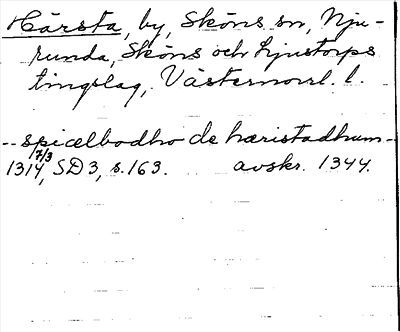 Härsta, by, Sköns sn, Nju-
runda, Sköns och Ljustorps
tingslag, Västernorrl. l.
-- spiælbodho de hæristadhum --
17/3
1314, SD 3, s. 163. avskr. 1344.